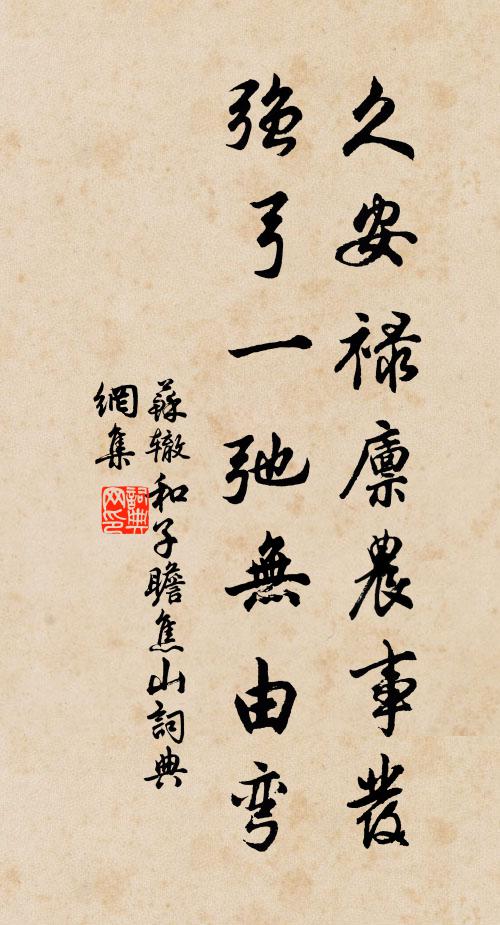 久安禄廩農事發
強弓一弛無由弯
蘇辙和子瞻焦山詞典
網集
詞典
网印